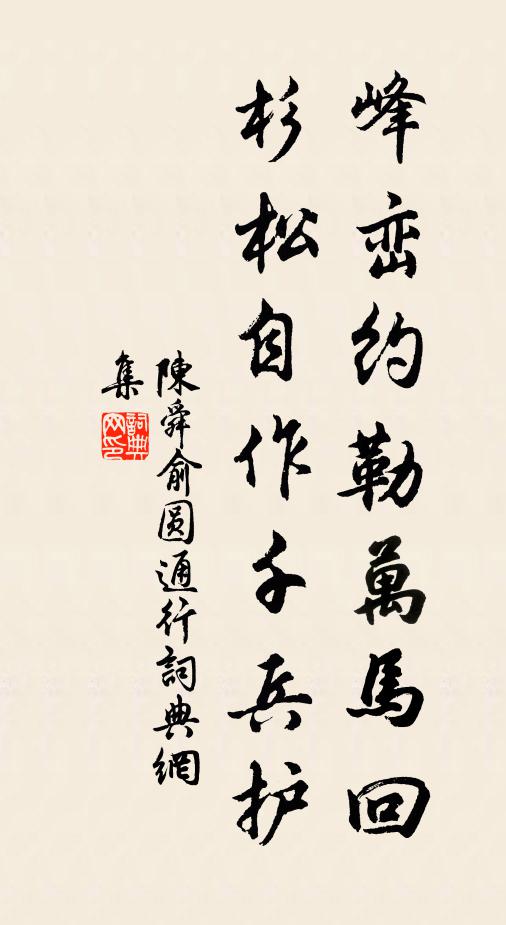 峰峦约勒萬馬回
杉松自作千兵护
陳舜俞圆通行詞典網
集
詞典
网印